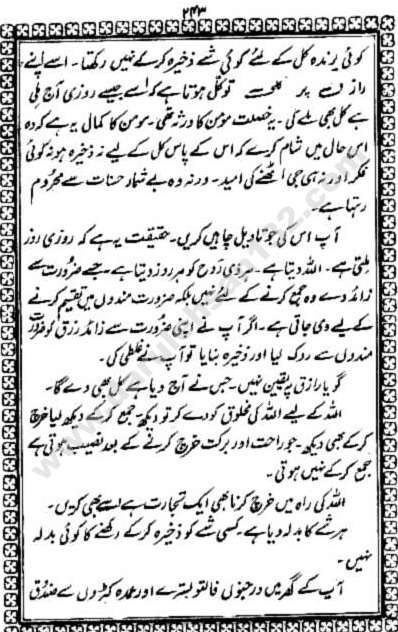 ۲۴۳
کوئی پرندہ کل کے لئے کوئی شے ذخیرہ کرکے نہیں رکھتا۔ اسے اپنے
رازق پر توکل ہوتا ہے کہ اسے جیسے روزی آج ملی
ہے کل بھی ملے گی۔ یہ خصلت مومن کا ورثہ تھی۔ مومن کا کمال یہ ہے کہ وہ
اس حال میں شام کرے کہ اس کے پاس کل کے لیے نہ ذخیرہ ہو نہ کوئی
فکر اور نہ ہی جی اٹھنے کی امید۔ ورنہ وہ بے شمار حسنات سے محروم
رہتا ہے۔
آپ اس کی جو تاویل چاہیں کریں۔ حقیقت یہ ہے کہ روزی روز
ملتی ہے۔ اللہ دیتا ہے۔ ہر ذی روح کو ہر روز دیتا ہے۔ جسے ضرورت سے
زائد دے وہ جمع کرنے کے لئے نہیں بلکہ ضرورت مندوں میں تقسیم کرنے
کے لیے دی جاتی ہے۔ اگر آپ نے اپنی ضرورت سے زائد رزق کو ضرورت
مندوں سے روک لیا اور ذخیرہ بنایا تو آپ نے غلطی کی۔
گویا رازق پر یقین نہیں۔ جس نے آج دیا ہے کل بھی دے گا۔
اللہ کے لیے اللہ کی مخلوق کو دے کر تو دیکھ۔ جمع کرکے دیکھ لیا خرچ
کرکے بھی دیکھ۔ جو راحت اور برکت خرچ کرنے کے بعد نصیب ہوتی ہے
جمع کرکے نہیں ہوتی۔
اللہ کی راہ میں خرچ کرنا بھی ایک تجارت ہے اسے بھی کریں۔
ہر شے کا بدلہ دیا ہے۔ کسی شے کو ذخیرہ کرکے رکھنے کا کوئی بدلہ
نہیں۔
آپ کے گھر میں درجنوں فالتو بسترے اور عمدہ کپڑوں سے صندوق